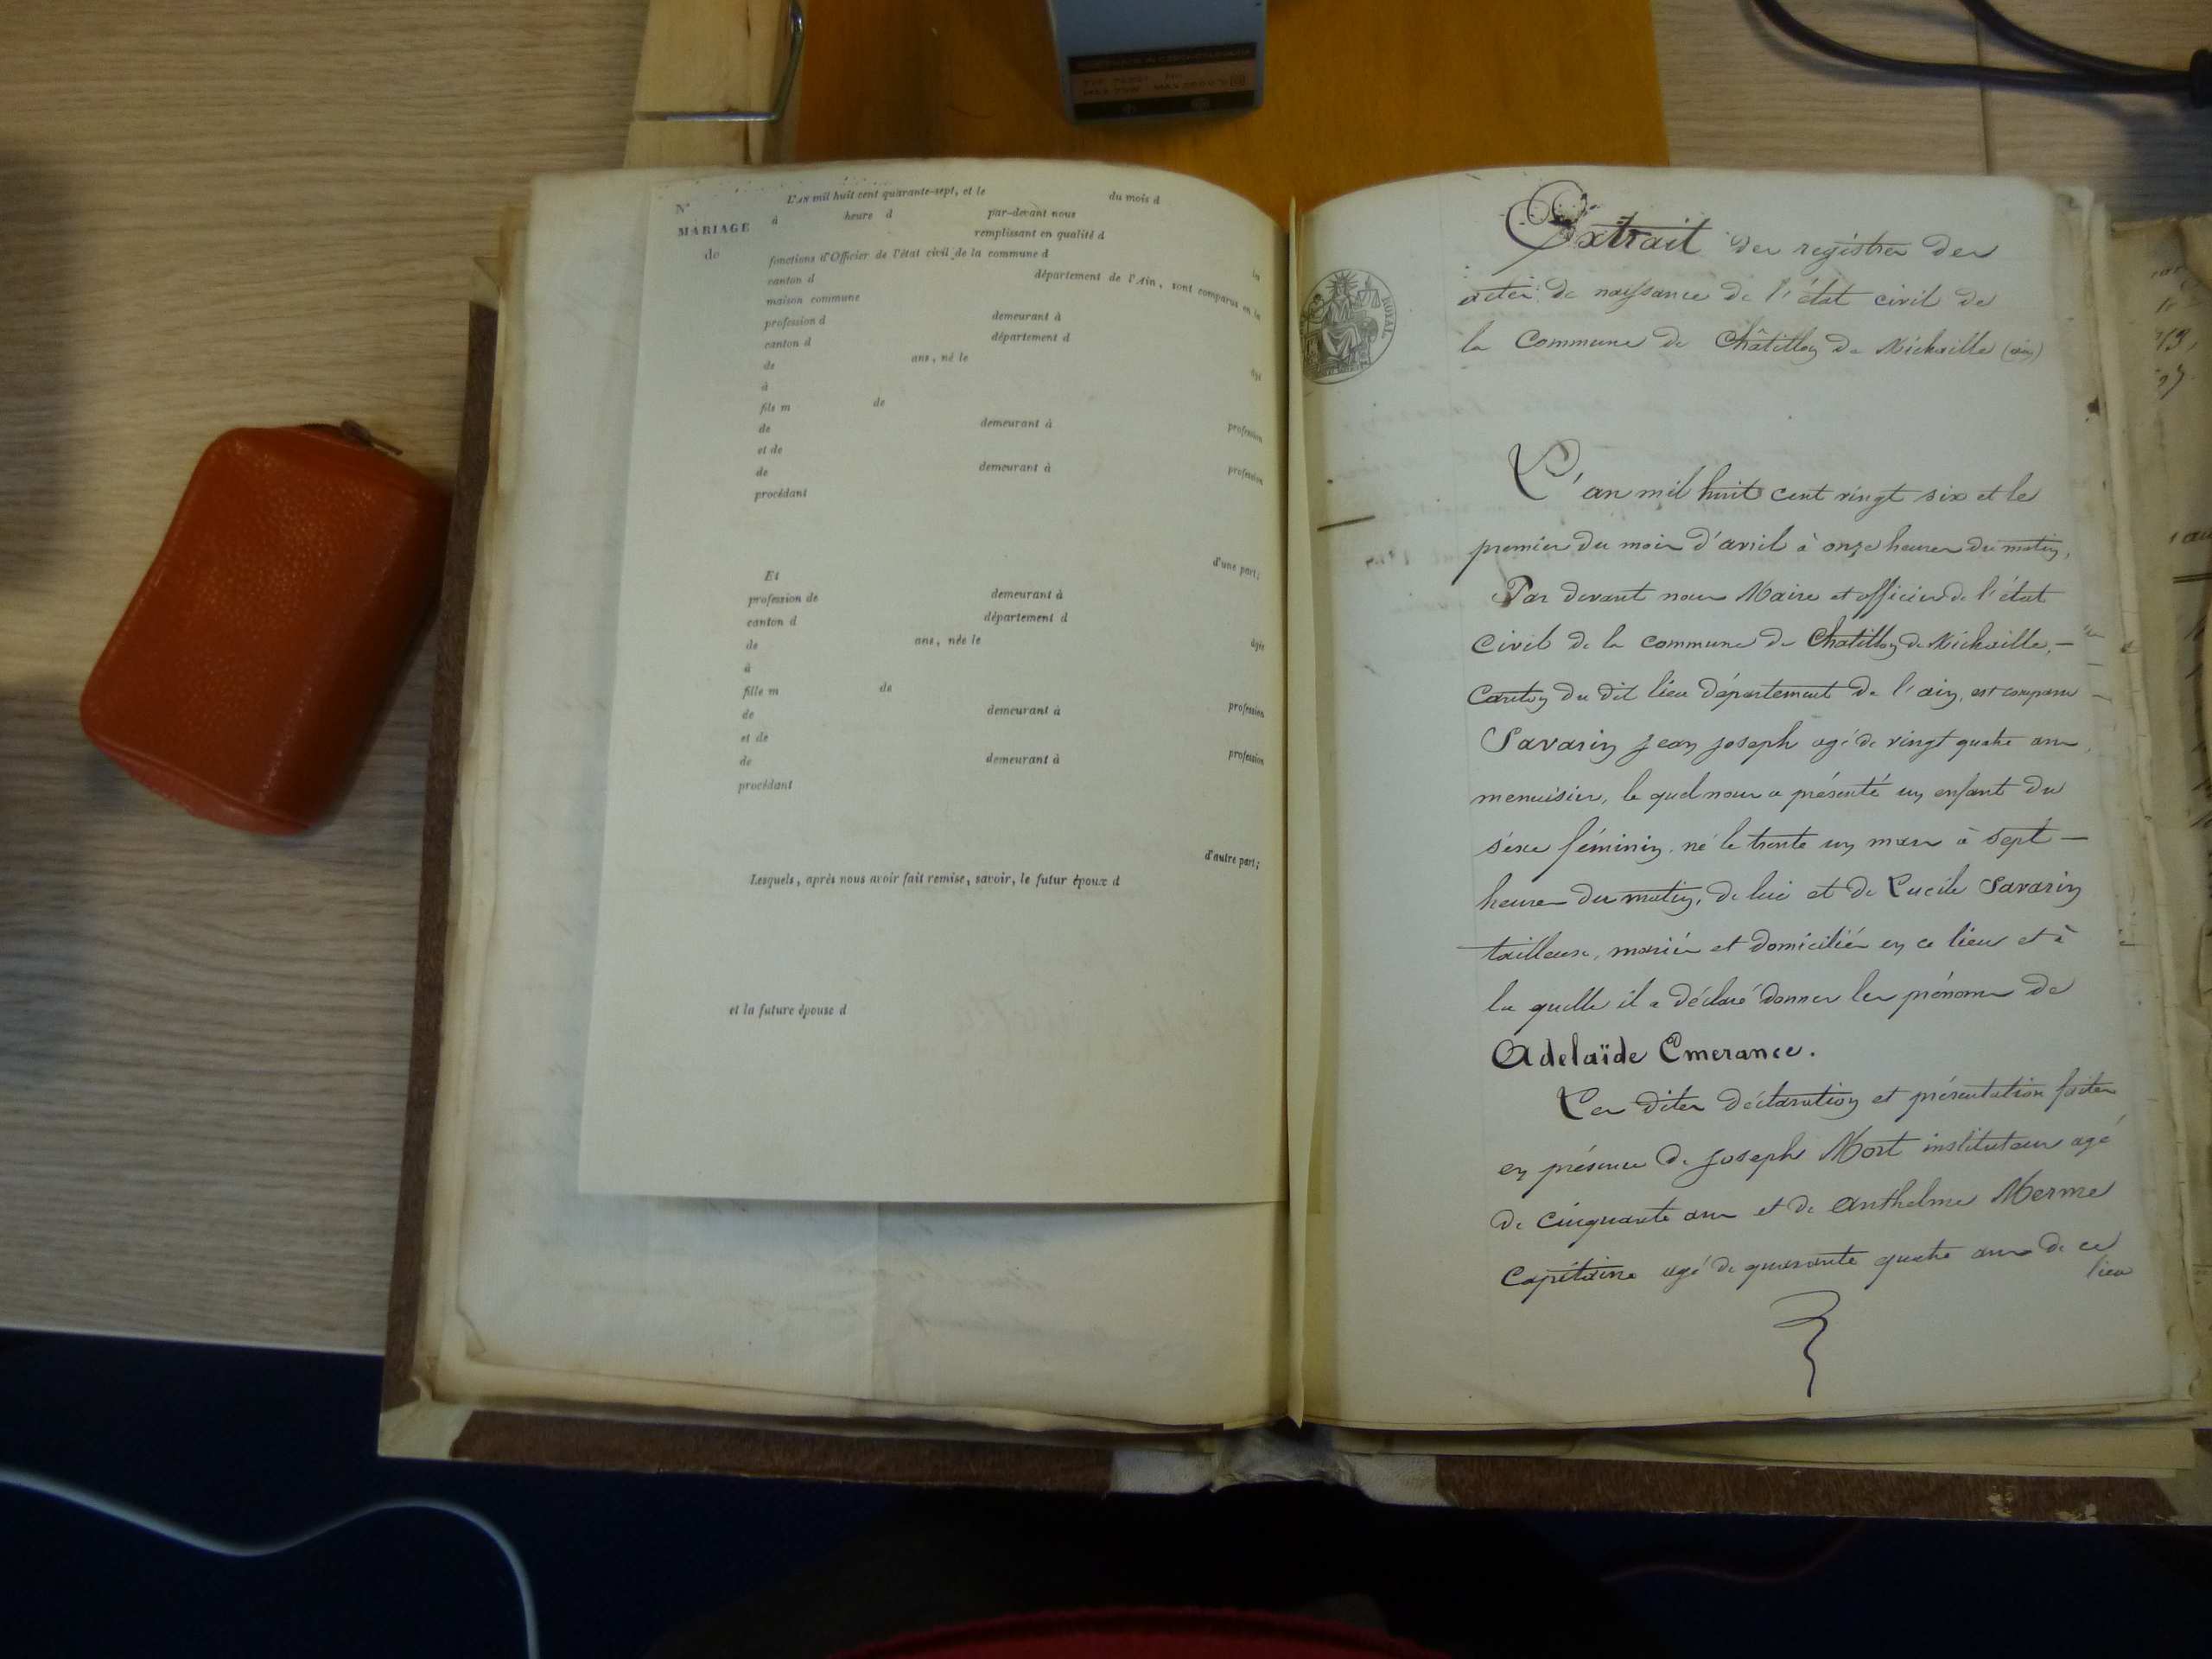 N°
MARIAGE
de
L'AN mil huit cent quarante-sept, et le du mois d
à heure d par-devant nous
remplissant en qualité d
fonctions d'Officier de l'état civil de la commune d les
canton d département de l'Ain, sont comparus en la
maison commune
profession d demeurant à
canton d département d
de ans, né le âgé
à
fils m de
de demeurant à profession
et de
de demeurant à profession
procédant
d'une part;
Et
profession de demeurant à
canton d département d
de ans, née le âgée
à
fille m de
de demeurant à profession
et de
de demeurant à profession
procédant
d'autre part;
Lesquels, après nous avoir fait remise, savoir, le futur époux d
et la future épouse d
ROYAL
Extrait des registres des
actes de naissance de l'état civil de
la Commune de Châtillon de Michaille (ain)
L'an mil huit cent vingt six et le
premier du mois d'avril à onze heures du matin,
Par devant nous Maire et officier de l'état
civil de la commune de Chatillon de Michaille,
Canton du dit lieu département de l'ain, est comparu
Savarin Jean Joseph agé de vingt quatre ans,
menuisier, le quel nous a présenté un enfant du
séxe féminin, né le trente un mars à sept
heures du matin, de lui et de Lucile Savarin
tailleuse, mariés et domiciliés en ce lieu et à
la quelle il a déclaré donner les prénoms de
Adelaïde Emerance.
Les dites déclaration et présentation faites
en présence de Joseph Mort instituteur agé
de cinquante ans et de Anthelme Merme
Capitaine agé de quarante quatre ans de ce
lieu